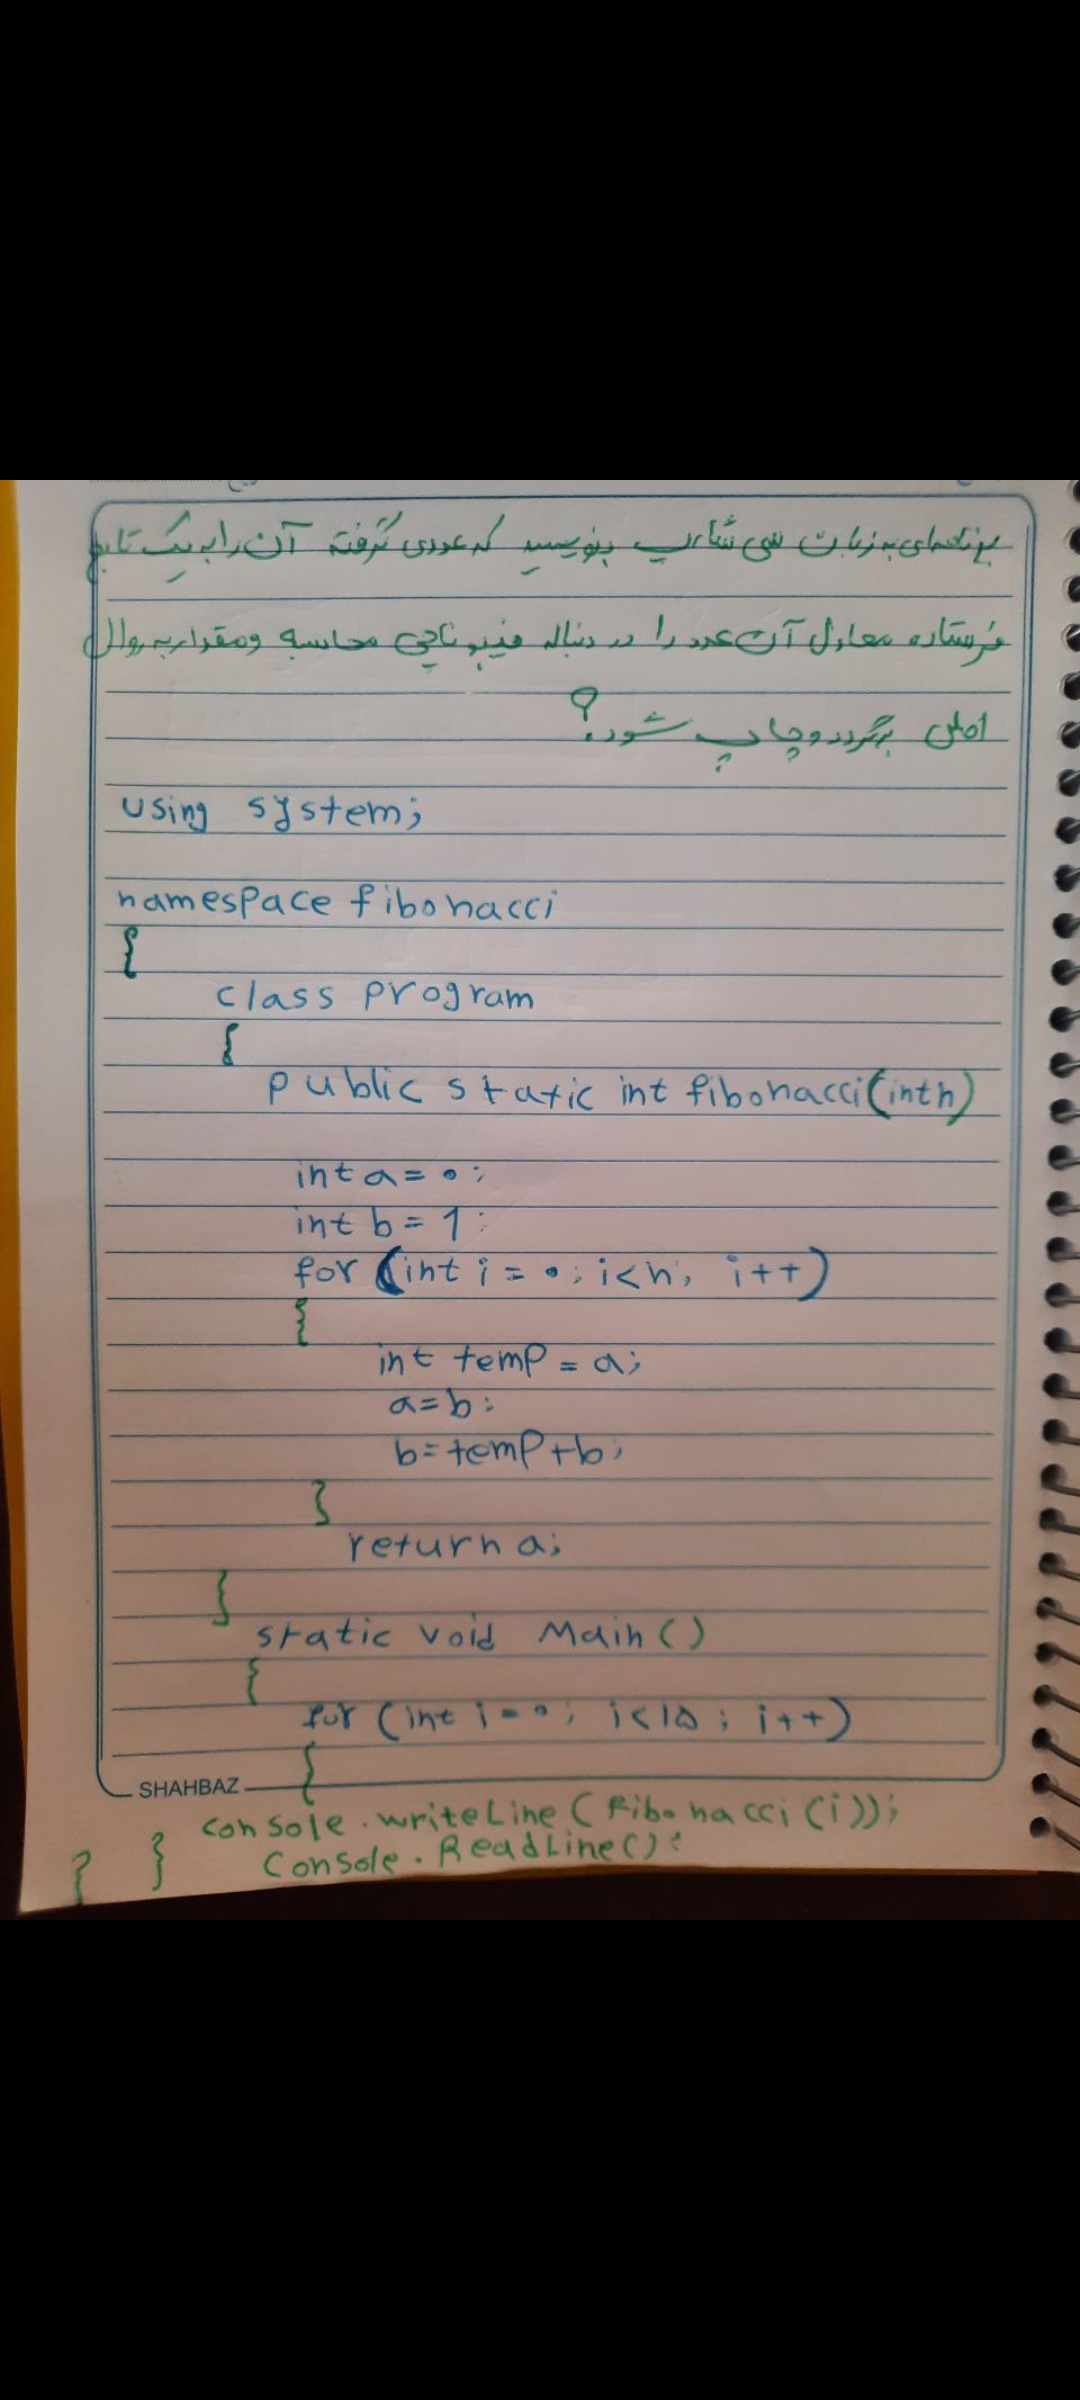 برنامه‌ای به زبان سی شارپ بنویسید که عددی گرفته آن را به یک تابع
فرستاده معادل آن عدد را در دنباله فیبوناچی محاسبه ومقدار به روال
اصلی برگردد و چاپ شود؟
using system;
namespace fibonacci
{
class program
{
public static int fibonacci(int n)
int a = 0;
int b = 1;
for (int i = 0; i<n; i++)
{
int temp = a;
a=b;
b=temp+b;
}
return a;
}
static void Main()
{
for (int i = 0; i<1۵; i++)
{
SHAHBAZ
console.writeLine(Fibonacci(i));
} } Console.ReadLine();